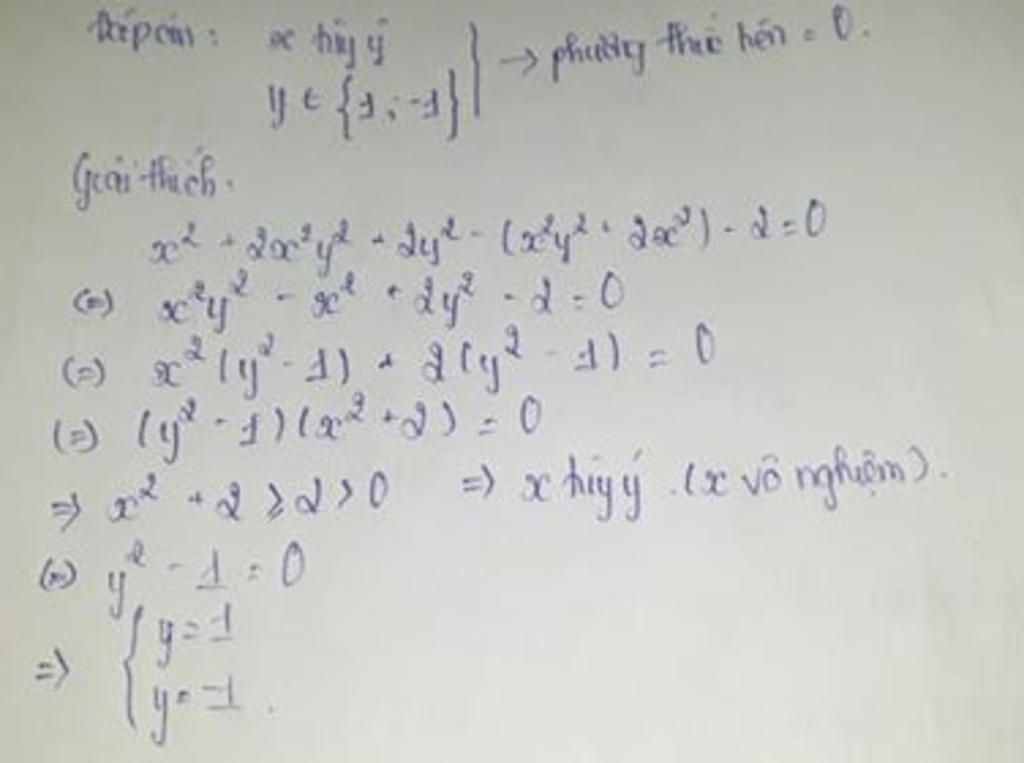 Đáp án: x tùy ý
y ∈ {1; -1} } → phương thức trên = 0.
Giải thích:
x² + 2x²y² + 2y² - (x²y² + 2x²) - 2 = 0
(=) x²y² - x² + 2y² - 2 = 0
(=) x²(y² - 1) + 2(y² - 1) = 0
(=) (y² - 1)(x² + 2) = 0
=> x² + 2 ≥ 2 > 0 => x tùy ý. (x vô nghiệm).
(=) y² - 1 = 0
=> { y = 1
y = -1.